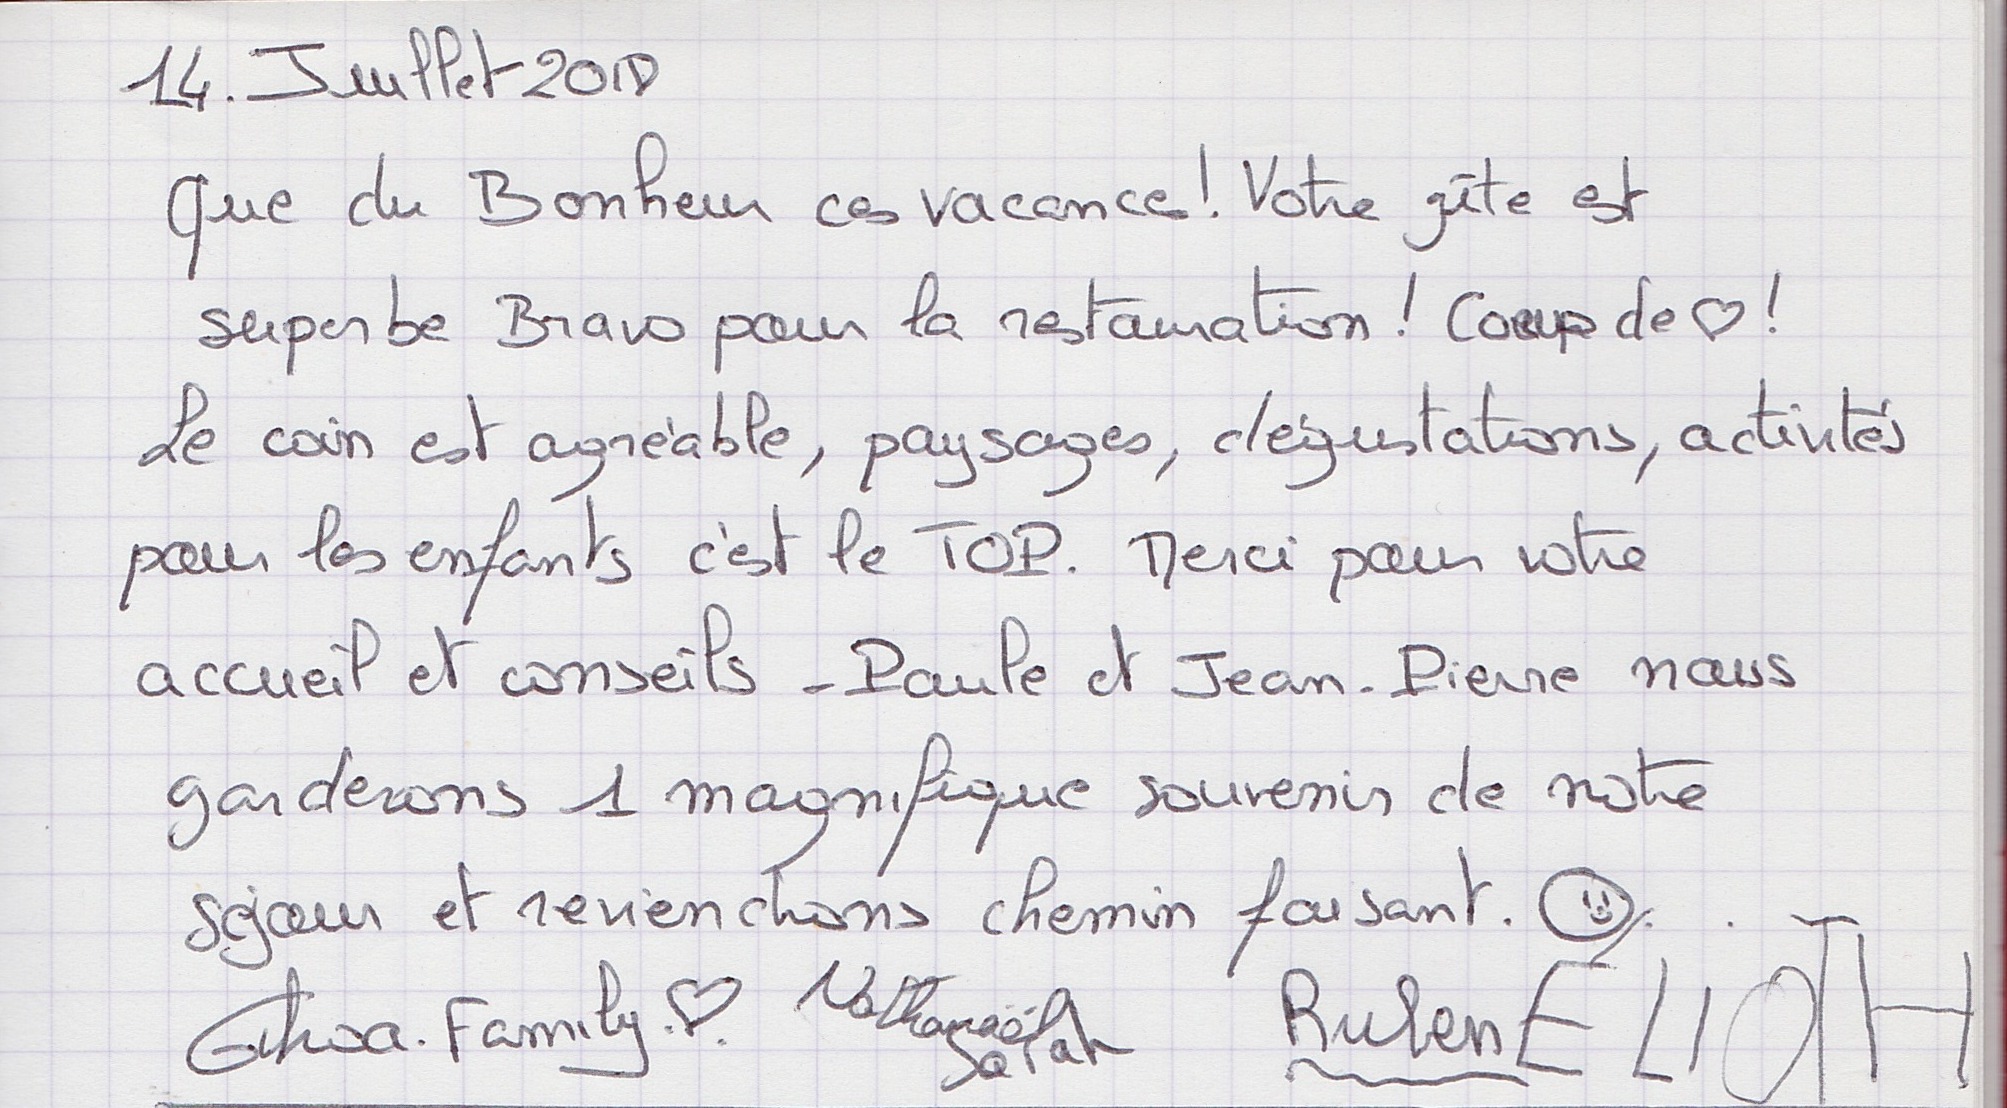 14. Juillet 2010
Que du Bonheur ces vacances! Votre gîte est
superbe Bravo pour la restauration! Coup de ♡!
Le coin est agréable, paysages, dégustations, activités
pour les enfants c'est le TOP. Merci pour votre
accueil et conseils - Paule et Jean-Pierre nous
garderons 1 magnifique souvenir de notre
séjour et reviendrons chemin faisant. ☺
Family ♡. Nathanaël Ruben ELIOTH
Sarah